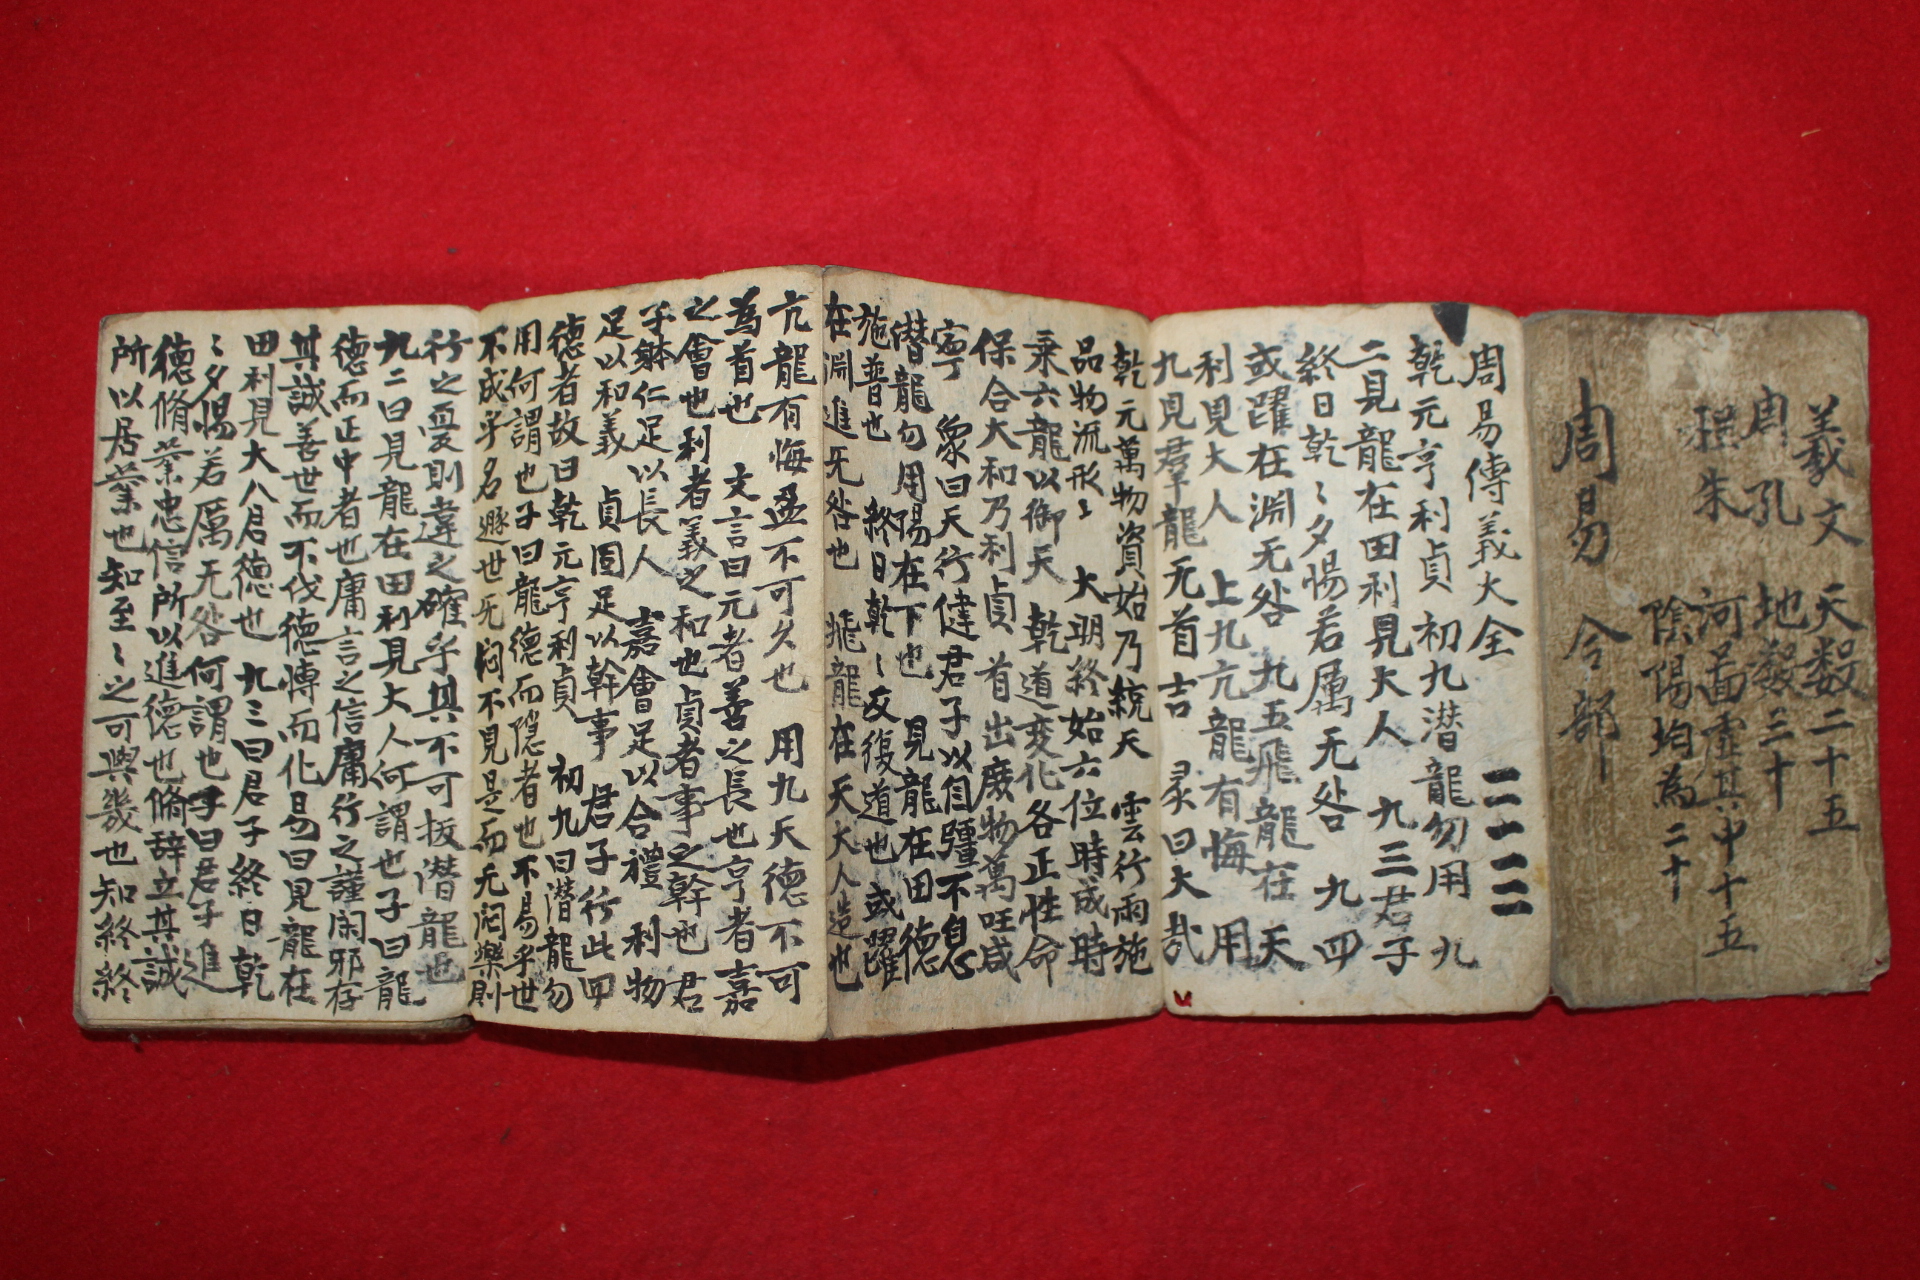 羲文 天数二十五
周孔 地数三十
程朱 河啚虚其中十五
陰陽均為二十
周易 合部
周易傳義大全
乾元亨利貞 初九潜龍勿用 九
二見龍在田利見大人 九三君子
終日乾〻夕惕若厲无咎 九四
或躍在淵无咎 九五飛龍在天
利見大人 上九亢龍有悔 用
九見羣龍无首吉 彖曰大哉
乾元萬物資始乃統天 雲行雨施
品物流形〻 大明終始六位時成時
乘六龍以御天 乾道変化各正性命
保合大和乃利貞 首出庶物萬国咸
寧 象曰天行健君子以自彊不息
潜龍勿用陽在下也 見龍在田德
施普也 終日乾〻反復道也 或躍
在淵進旡咎也 飛龍在天大人造也
亢龍有悔盈不可久也 用九天德不可
為首也 文言曰元者善之長也亨者嘉
之會也利者義之和也貞者事之幹也 君
子躰仁足以長人 嘉會足以合禮 利物
足以和義 貞固足以幹事 君子行此四
德者故曰乾元亨利貞 初九曰潜龍勿
用何謂也子曰龍德而隠者也不易乎世
不成乎名遯世旡悶不見是而无悶樂則
行之憂則違之確乎其不可拔潜龍也
九二曰見龍在田利見大人何謂也子曰龍
德而正中者也庸言之信庸行之謹閑邪存
其誠善世而不伐德博而化易曰見龍在
田利見大人君德也 九三曰君子終日乾
〻夕惕若厲无咎何謂也子曰君子進
德脩業忠信所以進德也脩辞立其誠
所以居業也知至〻之可與幾也知終終